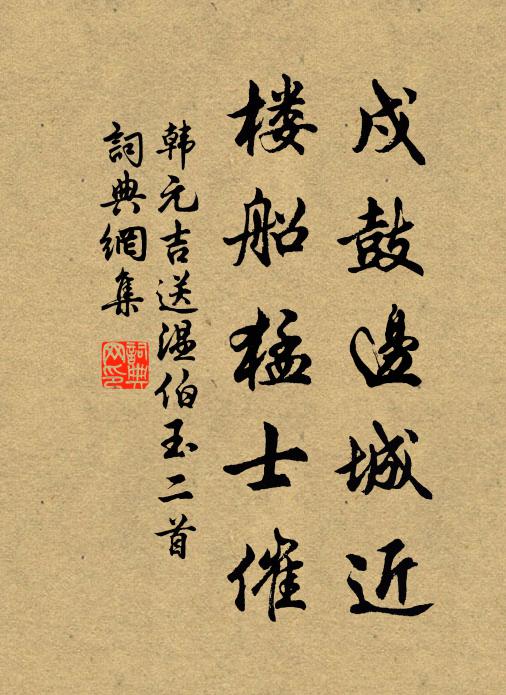 戍鼓邊城近
楼船猛士催
韩元吉送温伯玉二首
詞典網集
詞典网印